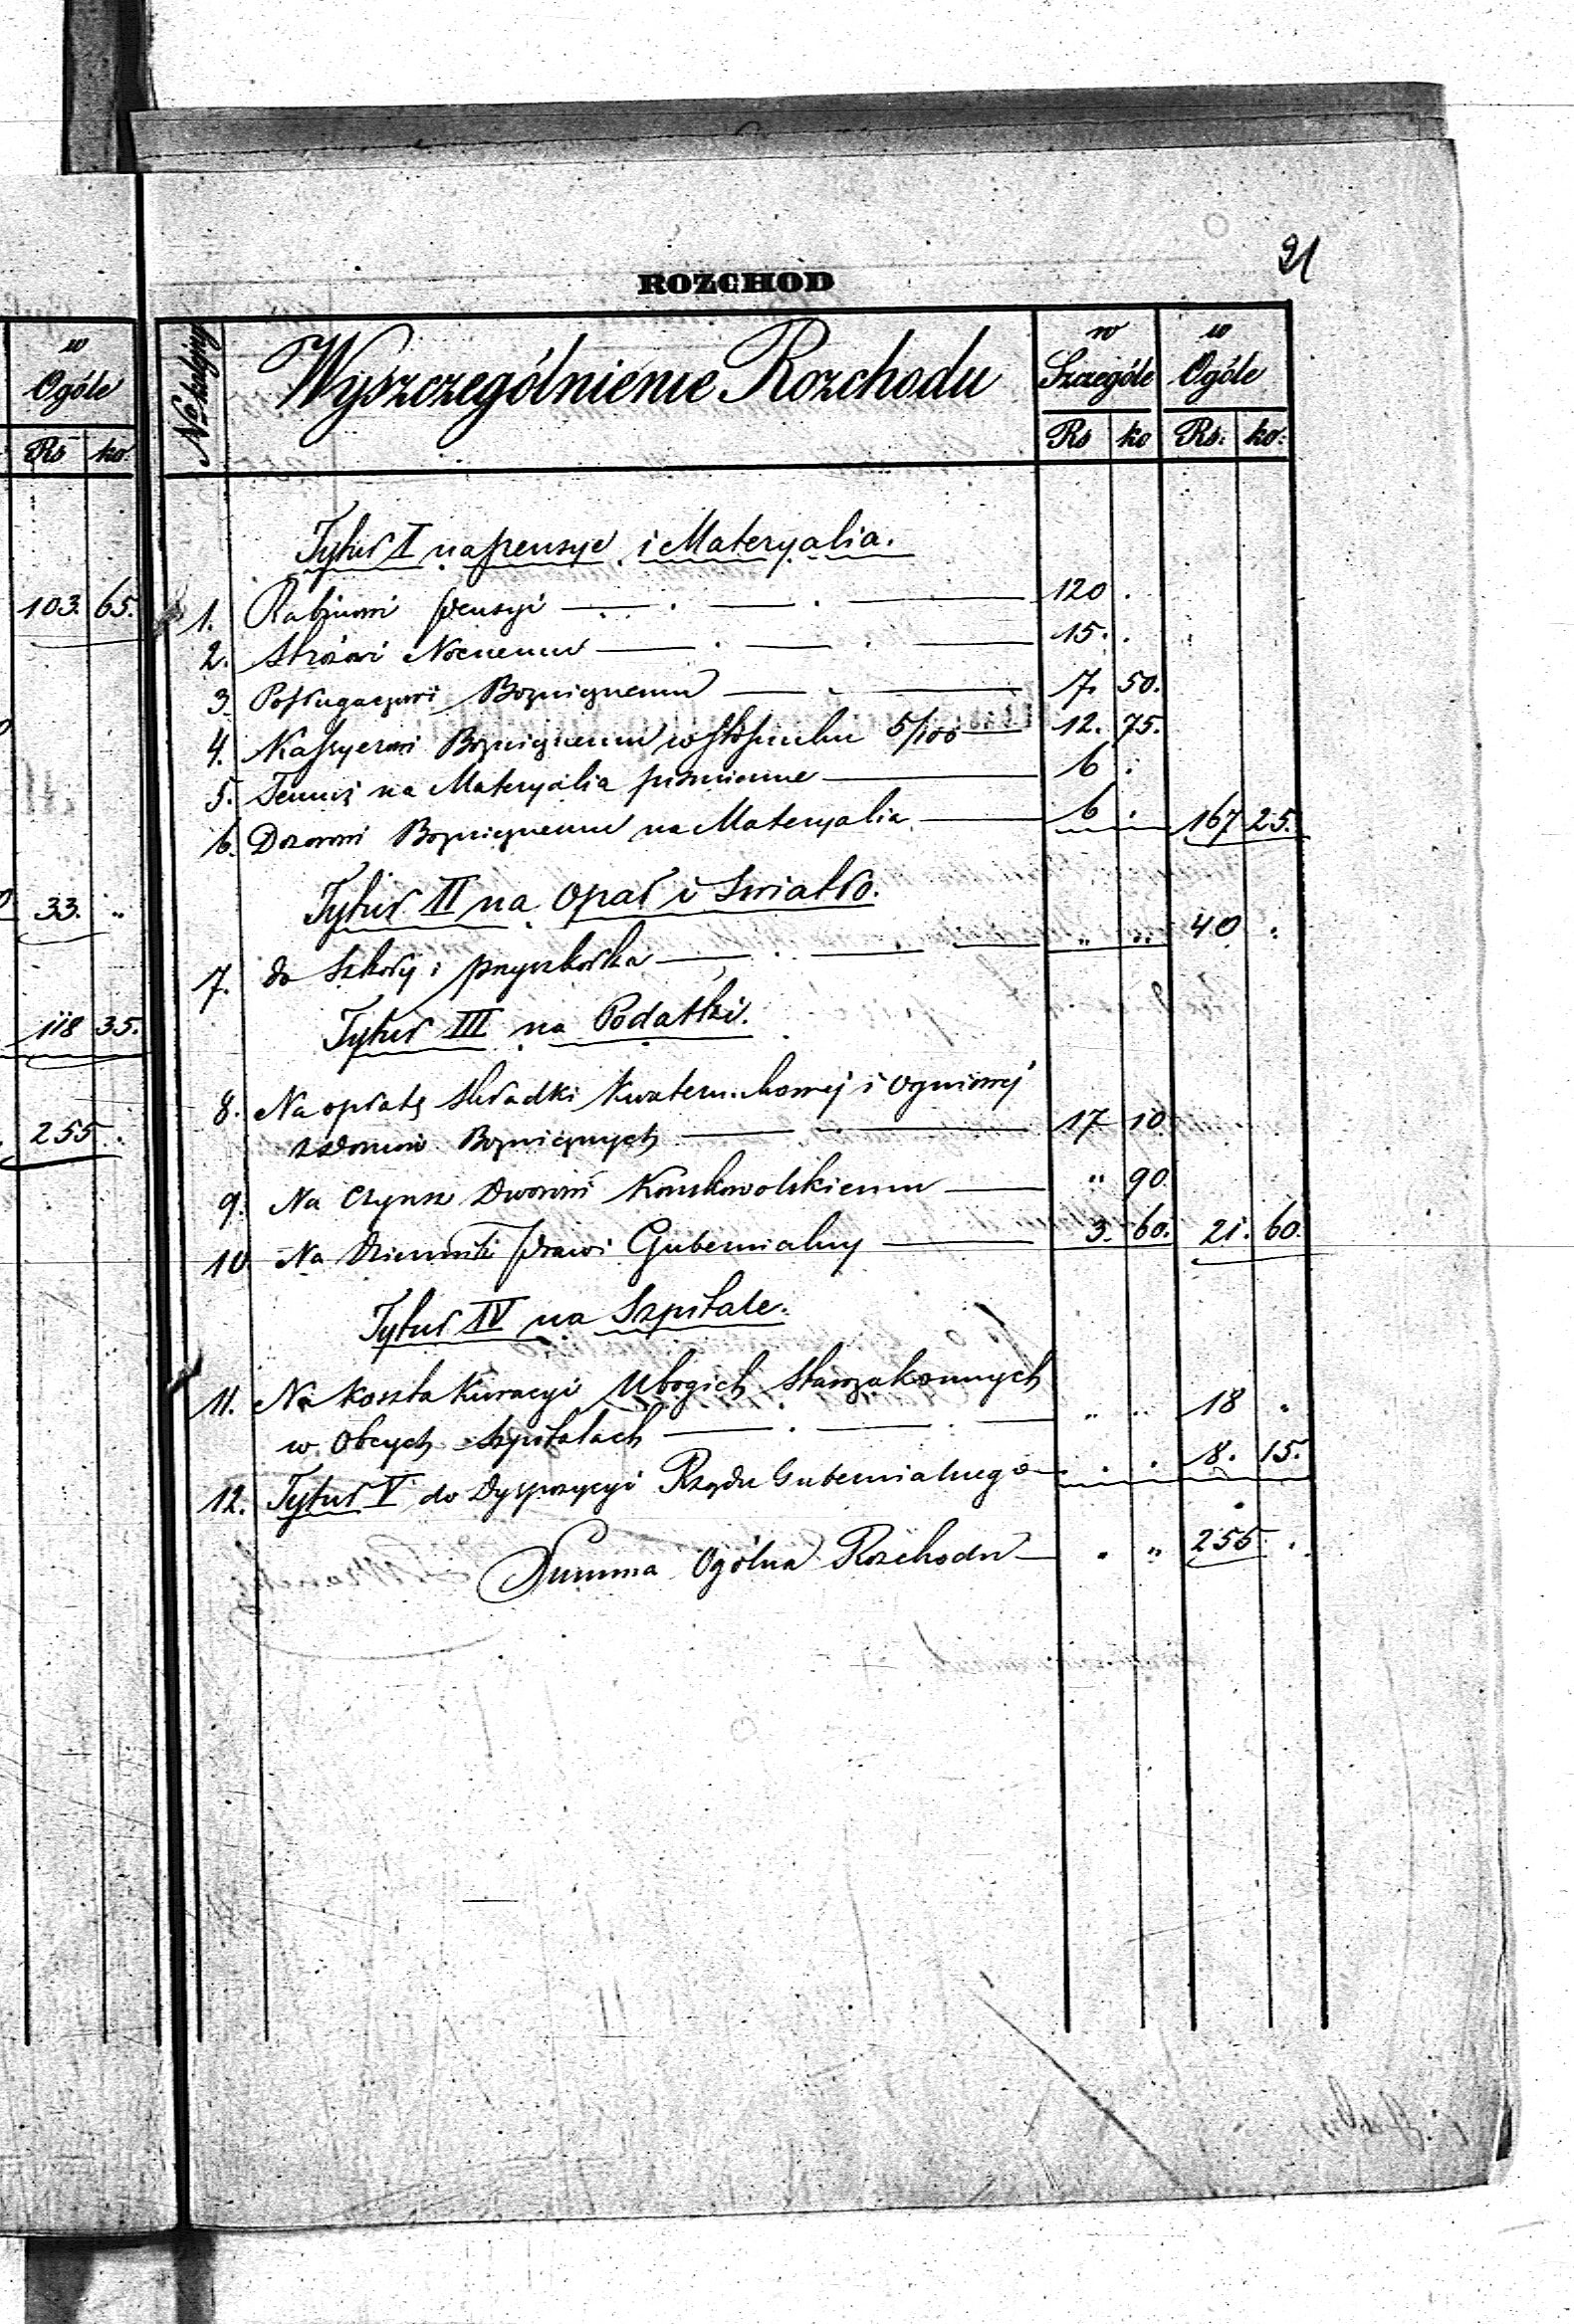 w
Ogóle
Rs ko.
103. 65.
33. "
118 35.
255 .
91
ROZCHOD
No kolejny Wyszczególnienie Rozchodu w Szczególe w Ogóle
Rs ko Rs: ko:
Tytuł I na pensye i Materyalia.
1. Rabinowi pensyi 120 .
2. Stróżowi Nocnemu 15. .
3. Posługaczowi Bożnicznemu 7. 50.
4. Kassyerowi Bożnicznemu w stosunku 5/100 12. 75.
5. Temuż na Materyalia piśmienne 6 .
6. Dozorowi Bożnicznemu na Materyalia 6 . 167 25.
Tytuł II na Opał i Swiatło.
7. do Szkoły i przyszkółka " " 40 .
Tytuł III na Podatki.
8. Na opłatę składki Kwaterunkowej i Ogniowej
z domów Bożnicznych 17 10
9. Na Czynsz Dworowi Konskowolskiemu " 90
10 Na Dziennik praw i Gubernialny 3. 60. 21. 60.
Tytuł IV na Szpitale.
11. Na koszta Kuracyi Ubogich Starozakonnych
w Obcych Szpitalach " " 18 "
12. Tytuł V do Dyspozycyi Rządu Gubernialnego . . 8. 15.
Summa Ogólna Rozchodu " " 255 .